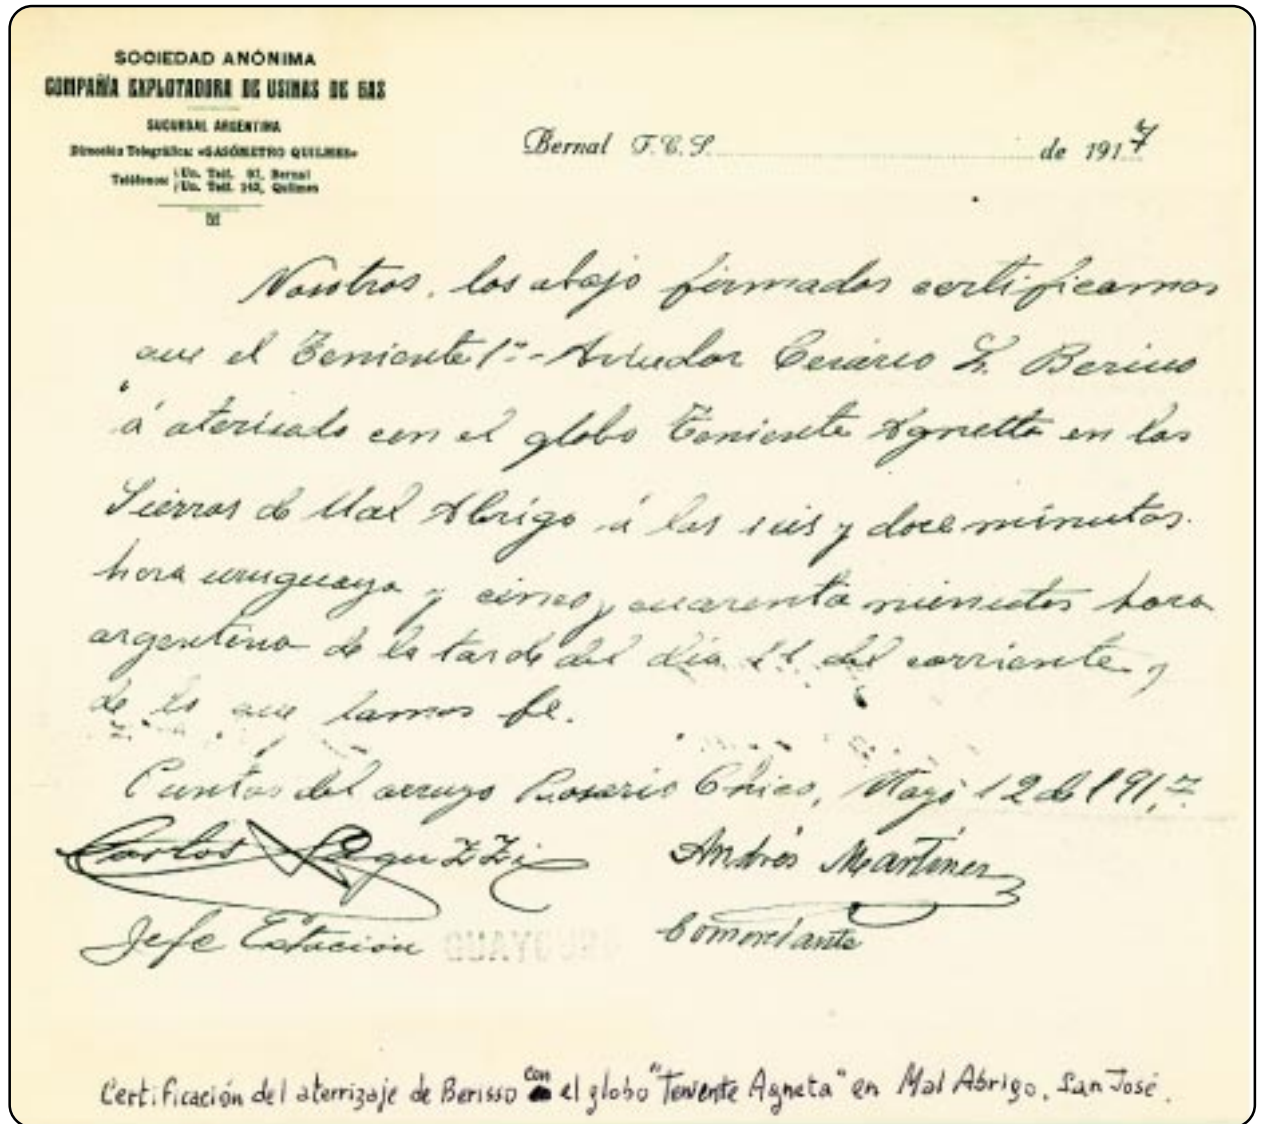 SOCIEDAD ANÓNIMA
COMPAÑÍA EXPLOTADORA DE USINAS DE GAS
SUCURSAL ARGENTINA
Dirección Telegráfica: «GASÓMETRO QUILMES»
Teléfonos: Un. Telf. 97, Bernal
Un. Telf. 143, Quilmes
Bernal F.C.S. de 1917
Nosotros, los abajo firmados certificamos
que el Teniente 1º- Aviador Cesáreo L. Beriso
á aterisado con el globo Teniente Agnetta en las
Sierras de Mal Abrigo á las seis y doce minutos
hora uruguaya y cinco y cuarenta minutos hora
argentina de la tarde del día 11 del corriente,
de lo que damos fe.
Puntas del arroyo Rosario Chico, Mayo 12 de 1917
Carlos PeguZZi Andrés Martínez
Jefe Estación Comerciante
Certificación del aterrizaje de Berisso con el globo "Teniente Agneta" en Mal Abrigo. San José.